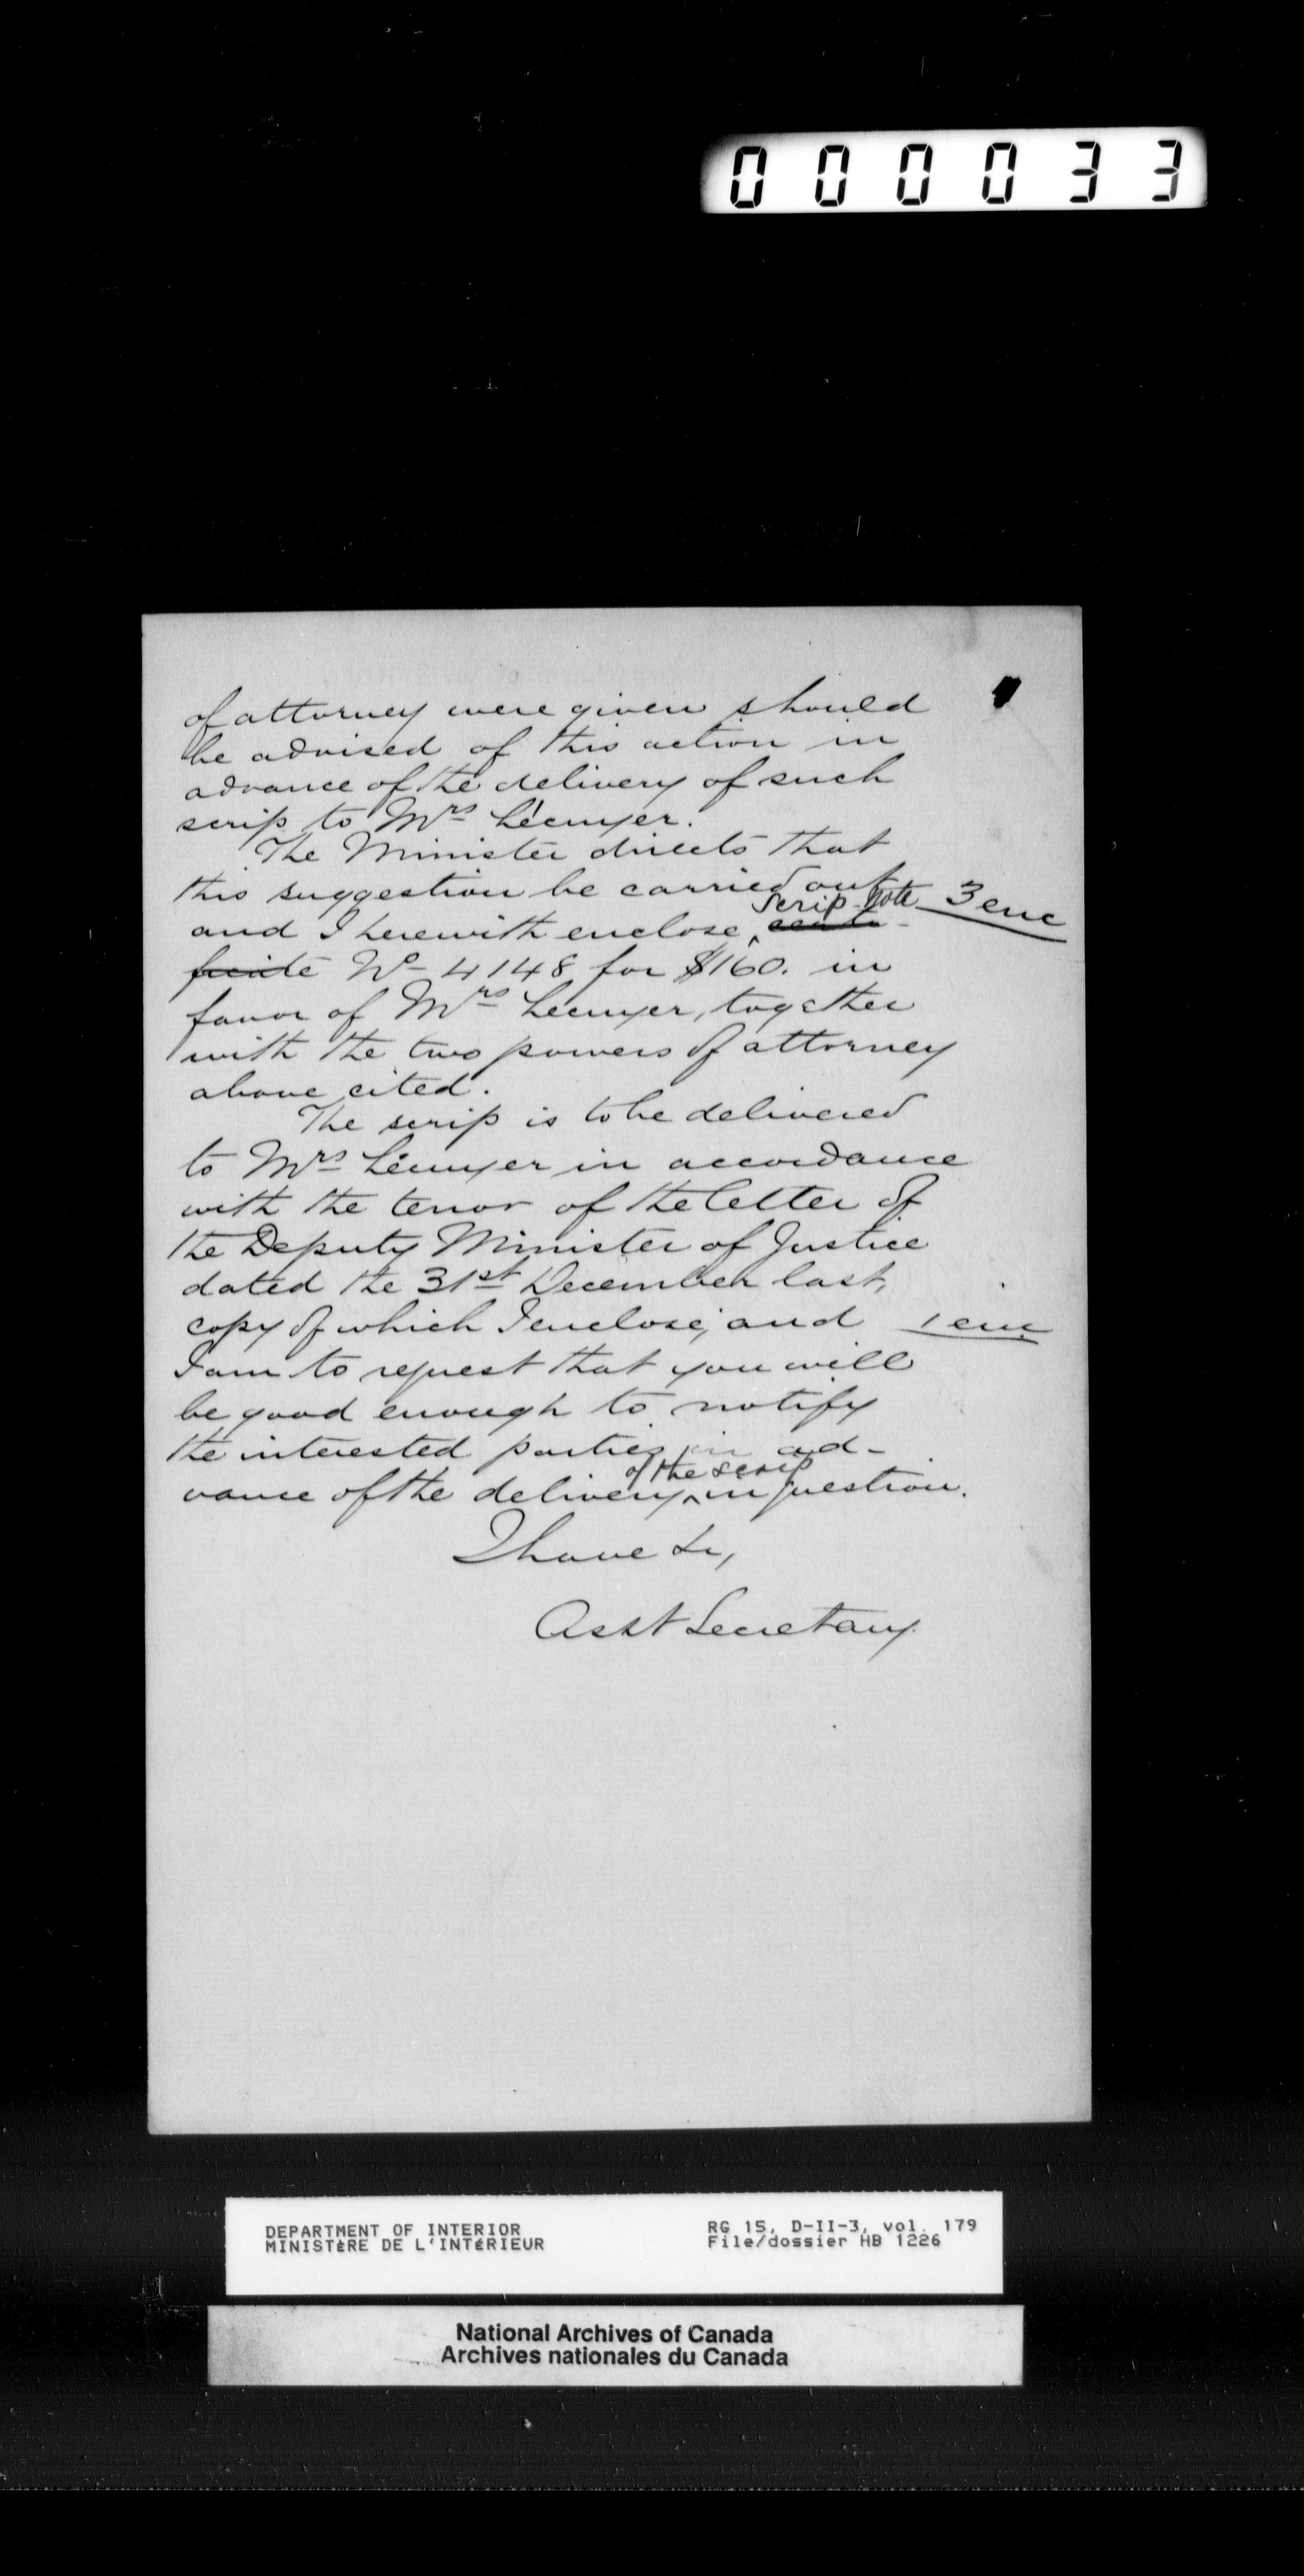 000033
of attorney were given should
be advised of this action in
advance of the delivery of such
scrip to Mrs
The Minister directs that
this suggestion be carried out
Scrip Note 3 enc
and I herewith enclose
ficate No 4148 for $160. in
favor of Mrs together
with the two powers of attorney
above cited.
The scrip is to be delivered
to Mrs in accordance
with the tenor of the letter of
the Deputy Minister of Justice
dated the 31st December last,
copy of which I enclose, and 1 enc
I am to request that you will
be good enough to notify
the interested parties in ad-
of the scrip
vance of the delivery in question.
I have &c,
Asst Secretary.
DEPARTMENT OF INTERIOR
MINISTÈRE DE L'INTÉRIEUR
RG 15, D-II-3, vol. 179
File/dossier HB 1226
National Archives of Canada
Archives nationales du Canada